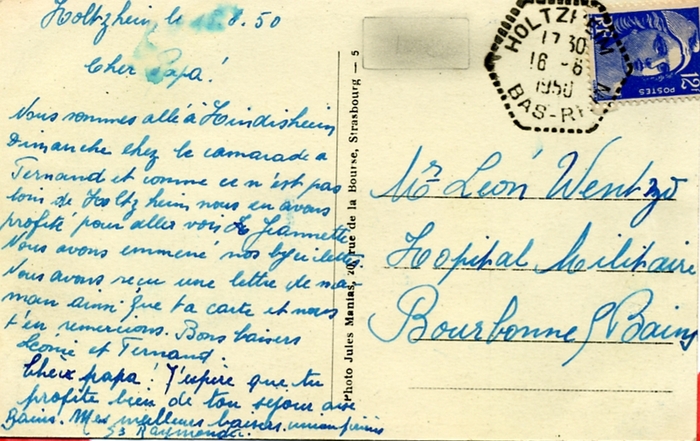 Holtzheim le 8.50
Cher Papa!
Nous sommes allé à Hindisheim
Dimanche chez le camarade a
Fernand et comme ce n'est pas
loin de Holtzheim nous en avons
profité pour aller voir Jeannette
Nous avons emmené nos
Nous avons reçu une lettre de ma
man ainsi que ta carte et nous
t'en remercions. Bons baisers
Léonie et Fernand.
Cher papa! J'espère que tu
profite bien de ton sejour aux
Bains. Mes meilleurs baisers
Raymonde.
Photo Jules Manias, 20, rue de la Bourse, Strasbourg — 5
HOLTZHEIM
17 30
16 -8
1950
BAS-RHIN
12F
POSTES
Mr Léon Wentzo
Hopital Militaire
Bourbonne s/ Bains